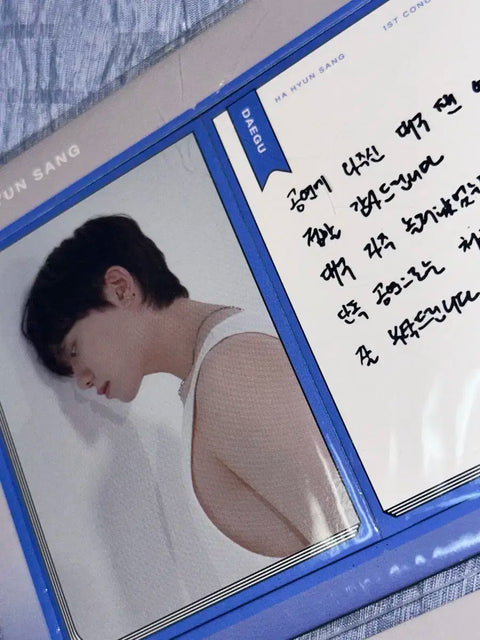 YUN SANG
HA HYUN SANG
1ST CONC
DAEGU
공연에 와주신 대구 팬
정말 감사드립니다
대구 자주
단독 공연으로는
잘 부탁드립니다